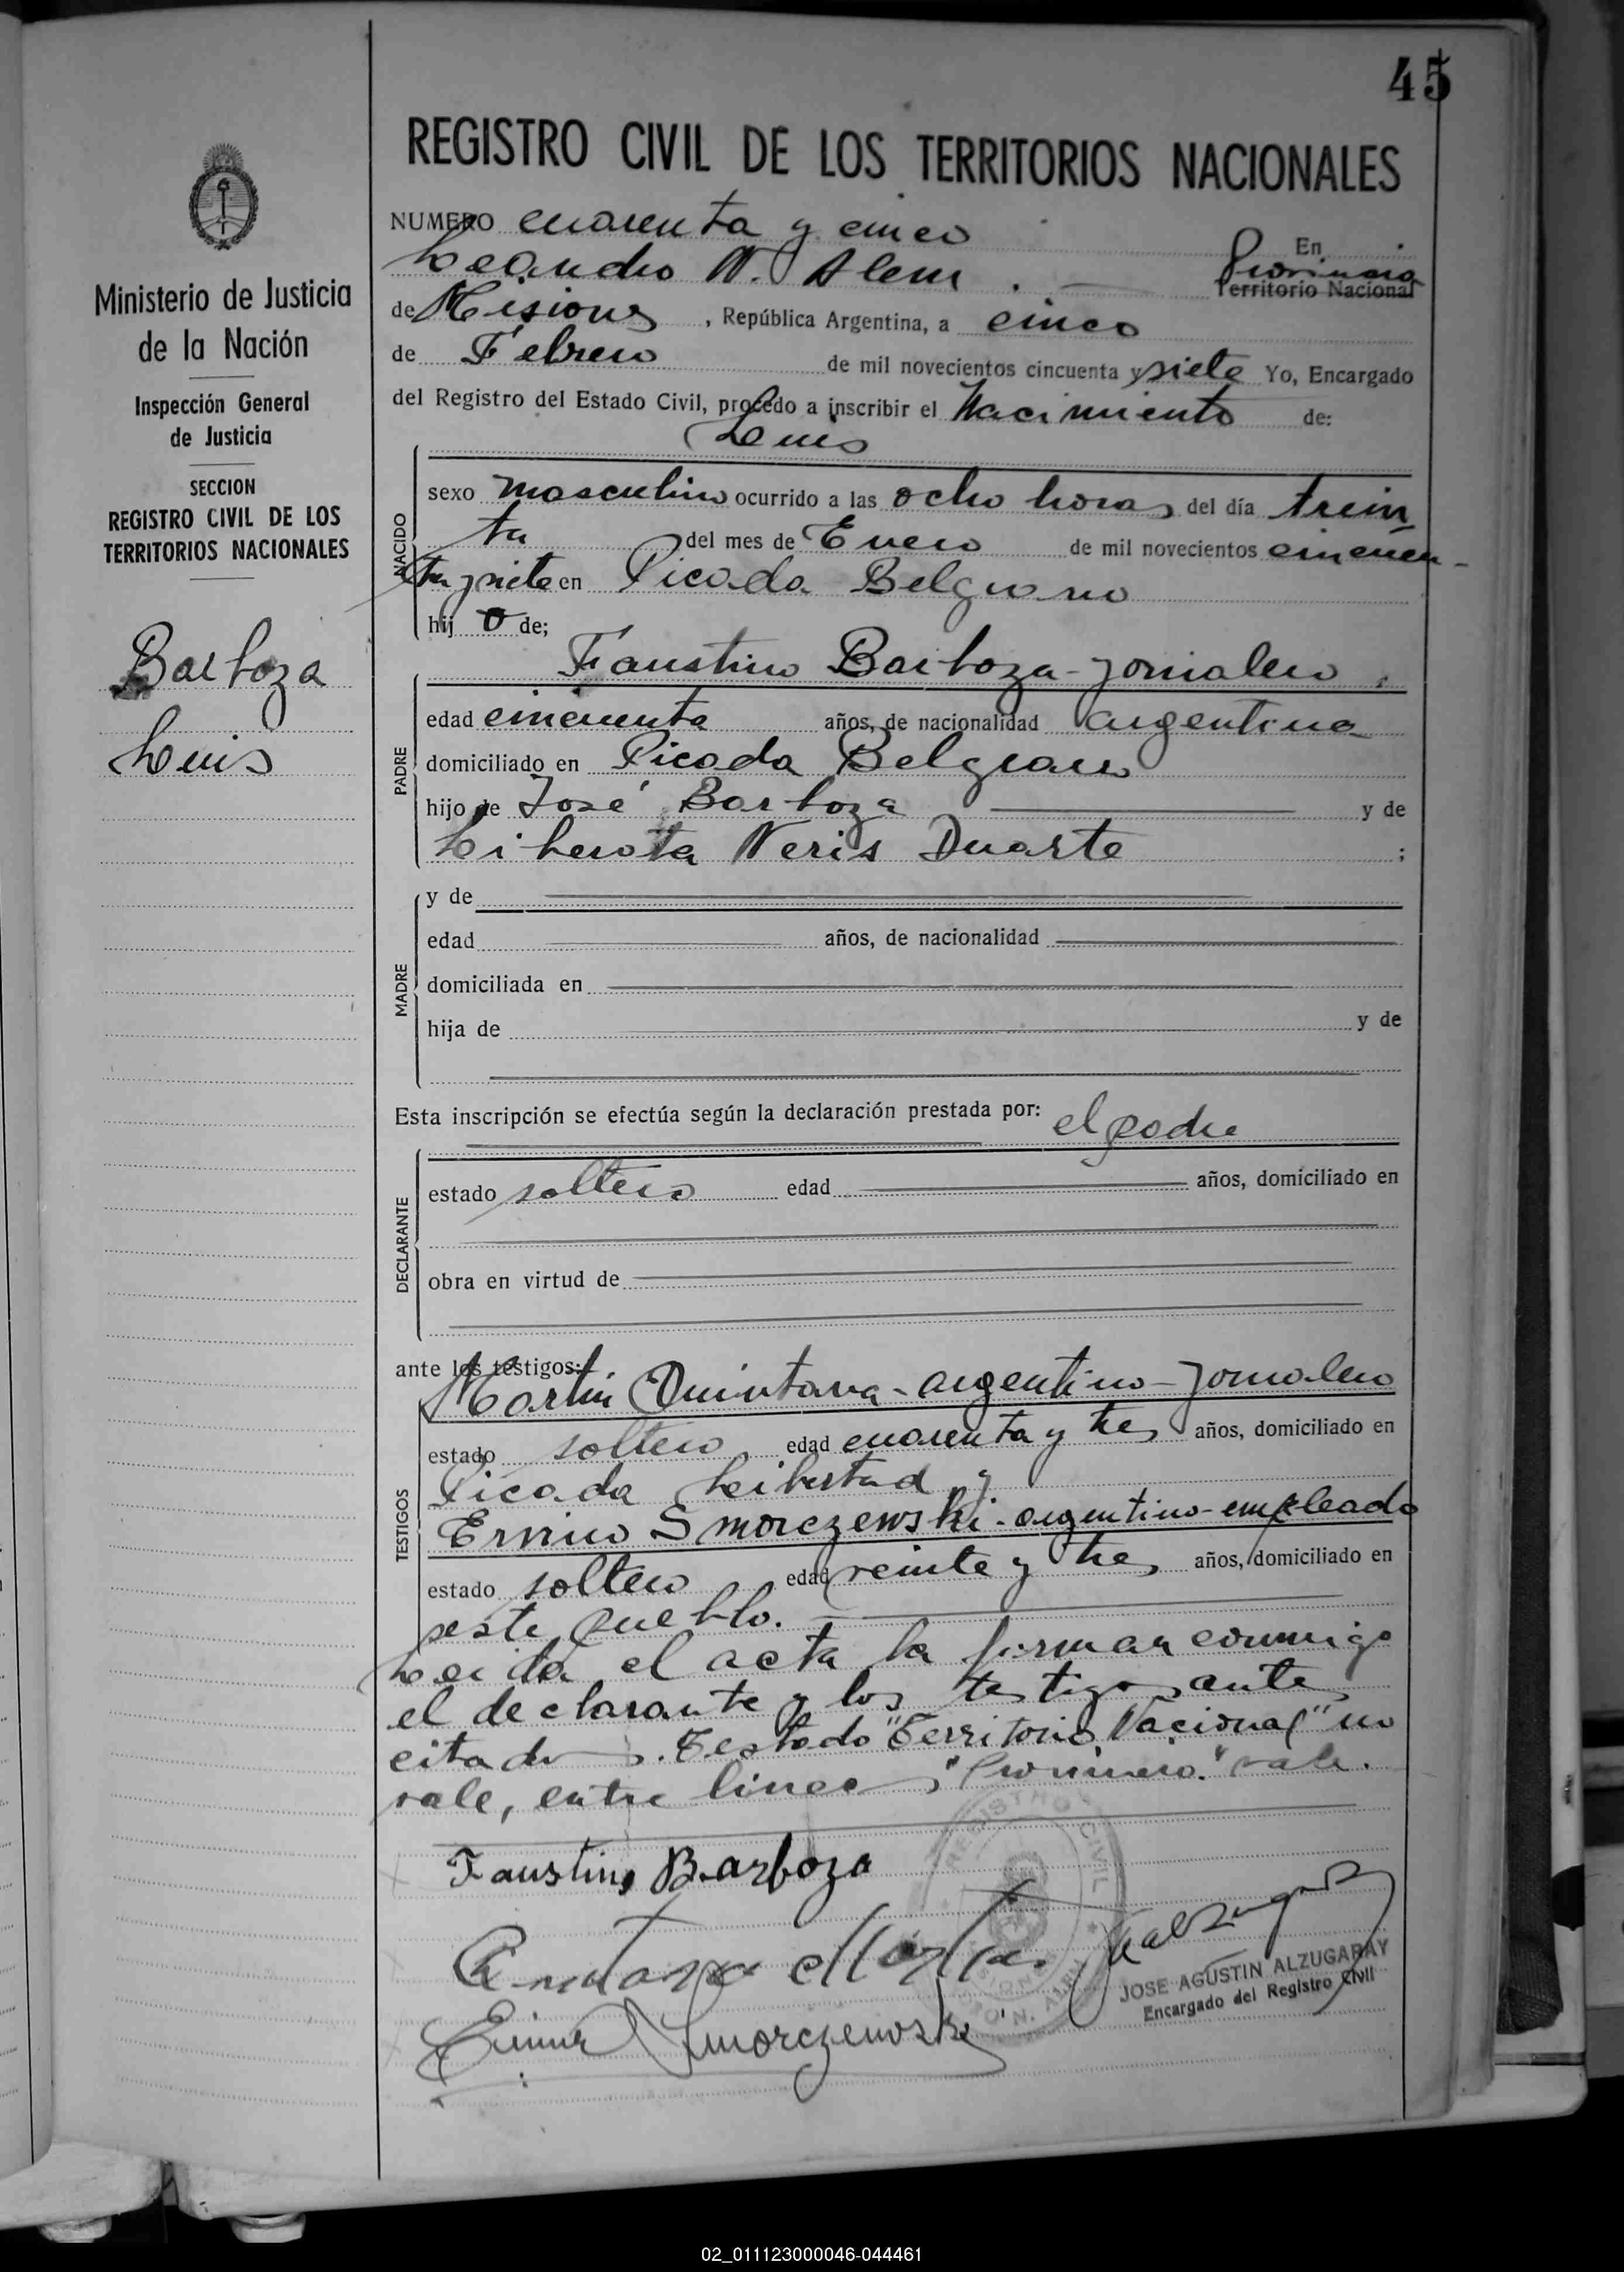 45
REGISTRO CIVIL DE LOS TERRITORIOS NACIONALES
Ministerio de Justicia
de la Nación
Inspección General
de Justicia
SECCION
REGISTRO CIVIL DE LOS
TERRITORIOS NACIONALES
Barboza
Luis
NUMERO cuarenta y cinco En
Leandro N. Alem . Provincia
Territorio Nacional
de Misiones , República Argentina, a cinco
de Febrero de mil novecientos cincuenta y siete Yo, Encargado
del Registro del Estado Civil, procedo a inscribir el Nacimiento de:
Luis
NACIDO
sexo masculino ocurrido a las ocho horas del día trein
ta del mes de Enero de mil novecientos cincuen-
ta y siete en Picada Belgrano
hijo de;
PADRE
Faustino Barboza - jornalero .
edad cincuenta años, de nacionalidad argentina
domiciliado en Picada Belgrano
hijo de José Barboza y de
Liberata Neris Duarte ;
MADRE
y de
edad años, de nacionalidad
domiciliada en
hija de y de
Esta inscripción se efectúa según la declaración prestada por: el padre
DECLARANTE
estado soltero edad años, domiciliado en
obra en virtud de
ante los testigos:
TESTIGOS
Martin Quintana - argentino - jornalero
estado soltero edad cuarenta y tres años, domiciliado en
Picada Libertad y
Ervino Smorczewski - argentino - empleado
estado soltero edad veinte y tres años, domiciliado en
este pueblo.
Leida el acta la firman conmigo
el declarante y los testigos antes
citados. Testado "Territorio Nacional" no
vale, entre lineas "Provincia" vale.
Faustino Barboza
REGISTRO CIVIL
MISIONES
N. ALEM
JOSE AGUSTIN ALZUGARAY
Encargado del Registro Civil
Smorczewski
02_011123000046-044461